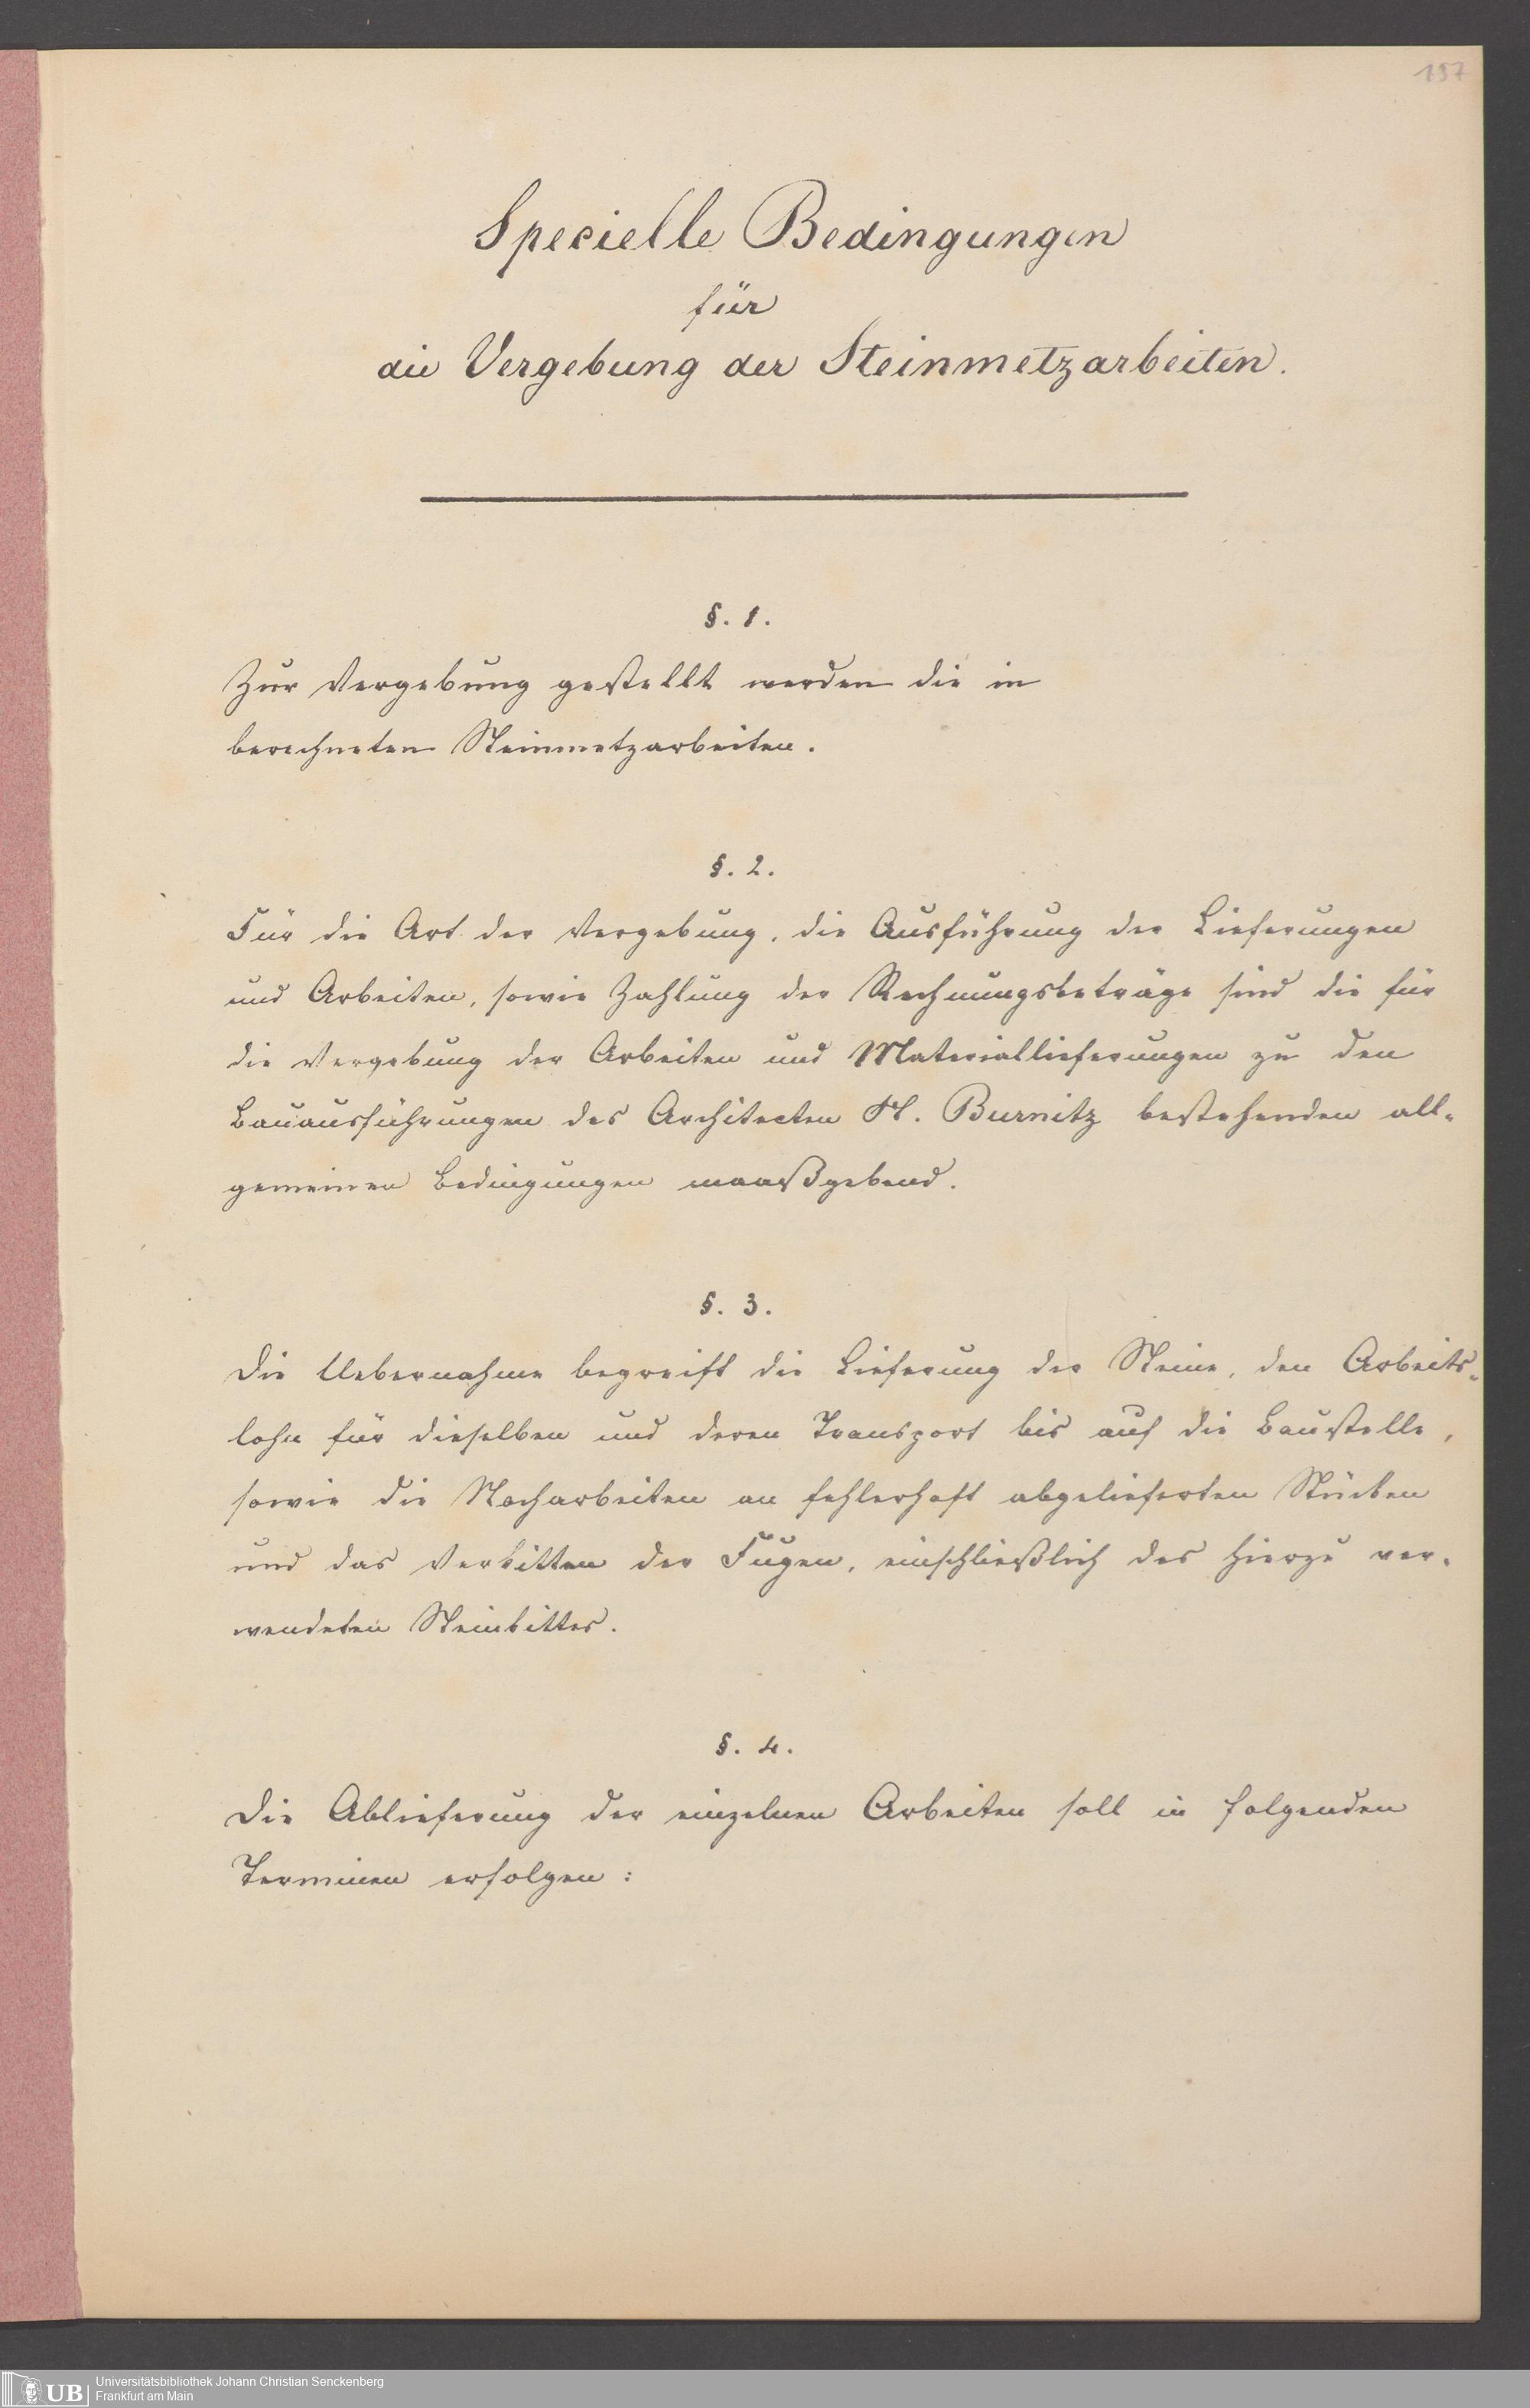 197
Specielle Bedingungen
für
die Vergebung der Steinmetzarbeiten.
§. 1.
Zur Vergebung gestellt werden die in
berechneten Steinmetzarbeiten.
§. 2.
Für die Art der Vergebung, die Ausführung der Lieferungen
und Arbeiten, sowie Zahlung der Rechnungsbeträge sind die für
die Vergebung der Arbeiten und Materiallieferungen zu den
Bauausführungen des Architecten H. Burnitz bestehenden all-
gemeinen Bedingungen maaßgebend.
§. 3.
Die Uebernahme begreift die Lieferung der Steine, den Arbeits-
lohn für dieselben und deren Transport bis auf die Baustelle,
sowie die Nacharbeiten an fehlerhaft abgelieferten Stücken
und das Verkitten der Fugen, einschließlich des hierzu ver-
wendeten Steinkittes.
§. 4.
Die Ablieferung der einzelnen Arbeiten soll in folgenden
Terminen erfolgen:
UB
Universitätsbibliothek Johann Christian Senckenberg
Frankfurt am Main